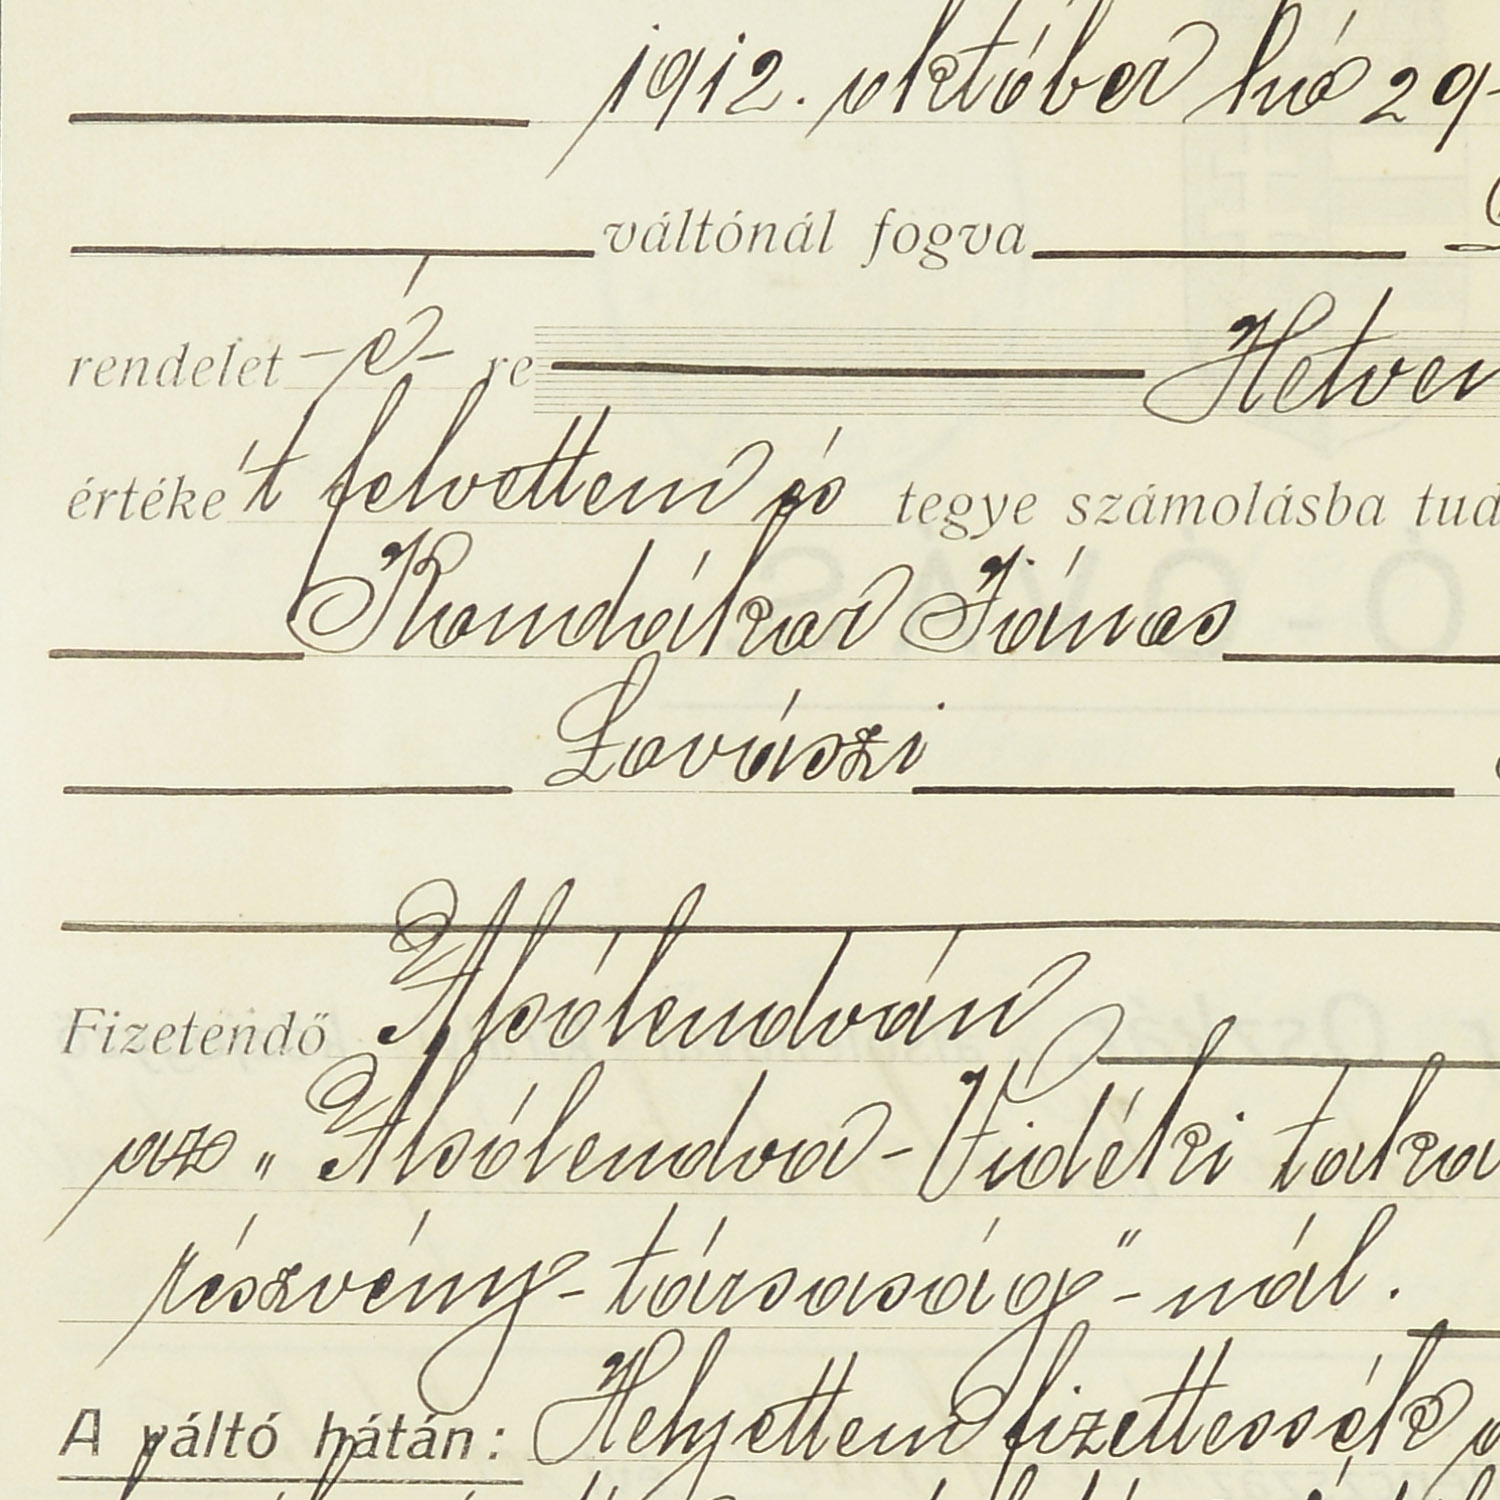 1912. október hó 29-
váltónál fogva
rendelet -é- re Hetven
értéke't felvettem és tegye számolásba tud
Kondákor János
Lovászi
Fizetendő Alsólendván
az „Alsólendva-Vidéki taka
részvény-társaság"-nál.
A váltó hátán: Helyettem fizettessék